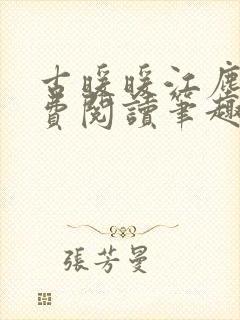 古暖暖江塵
費閱讀筆趣
張芳曼